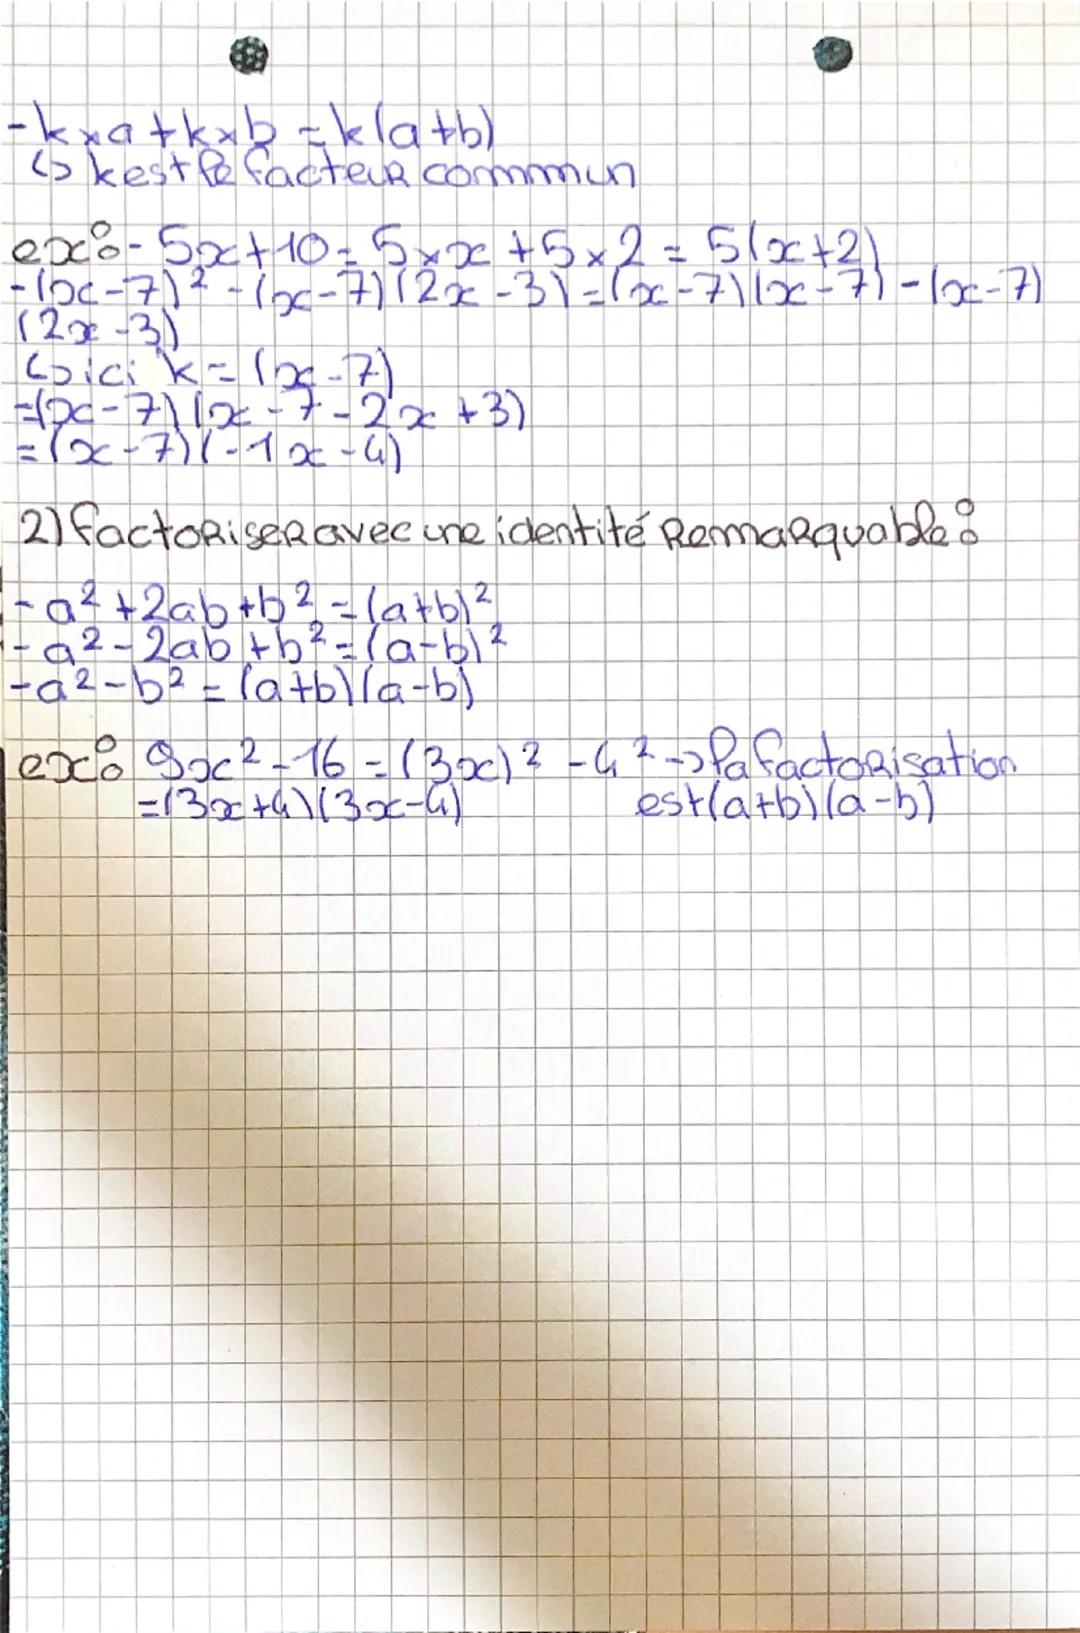 -k×a+k×b=k(a+b)
↳ k est le facteur commun
ex: - 5x+10=5×x+5×2=5(x+2)
-(x-7)²-(x-7)(2x-3)=(x-7)(x-7)-(x-7)
(2x-3)
↳ ici k=(x-7)
=(x-7)(x-7-2x+3)
=(x-7)(-1x-4)
2) factoriser avec une identité remarquable:
-a²+2ab+b²=(a+b)²
-a²-2ab+b²=(a-b)²
-a²-b²=(a+b)(a-b)
ex: 9x²-16=(3x)²-4²→la factorisation
=(3x+4)(3x-4) est(a+b)(a-b)